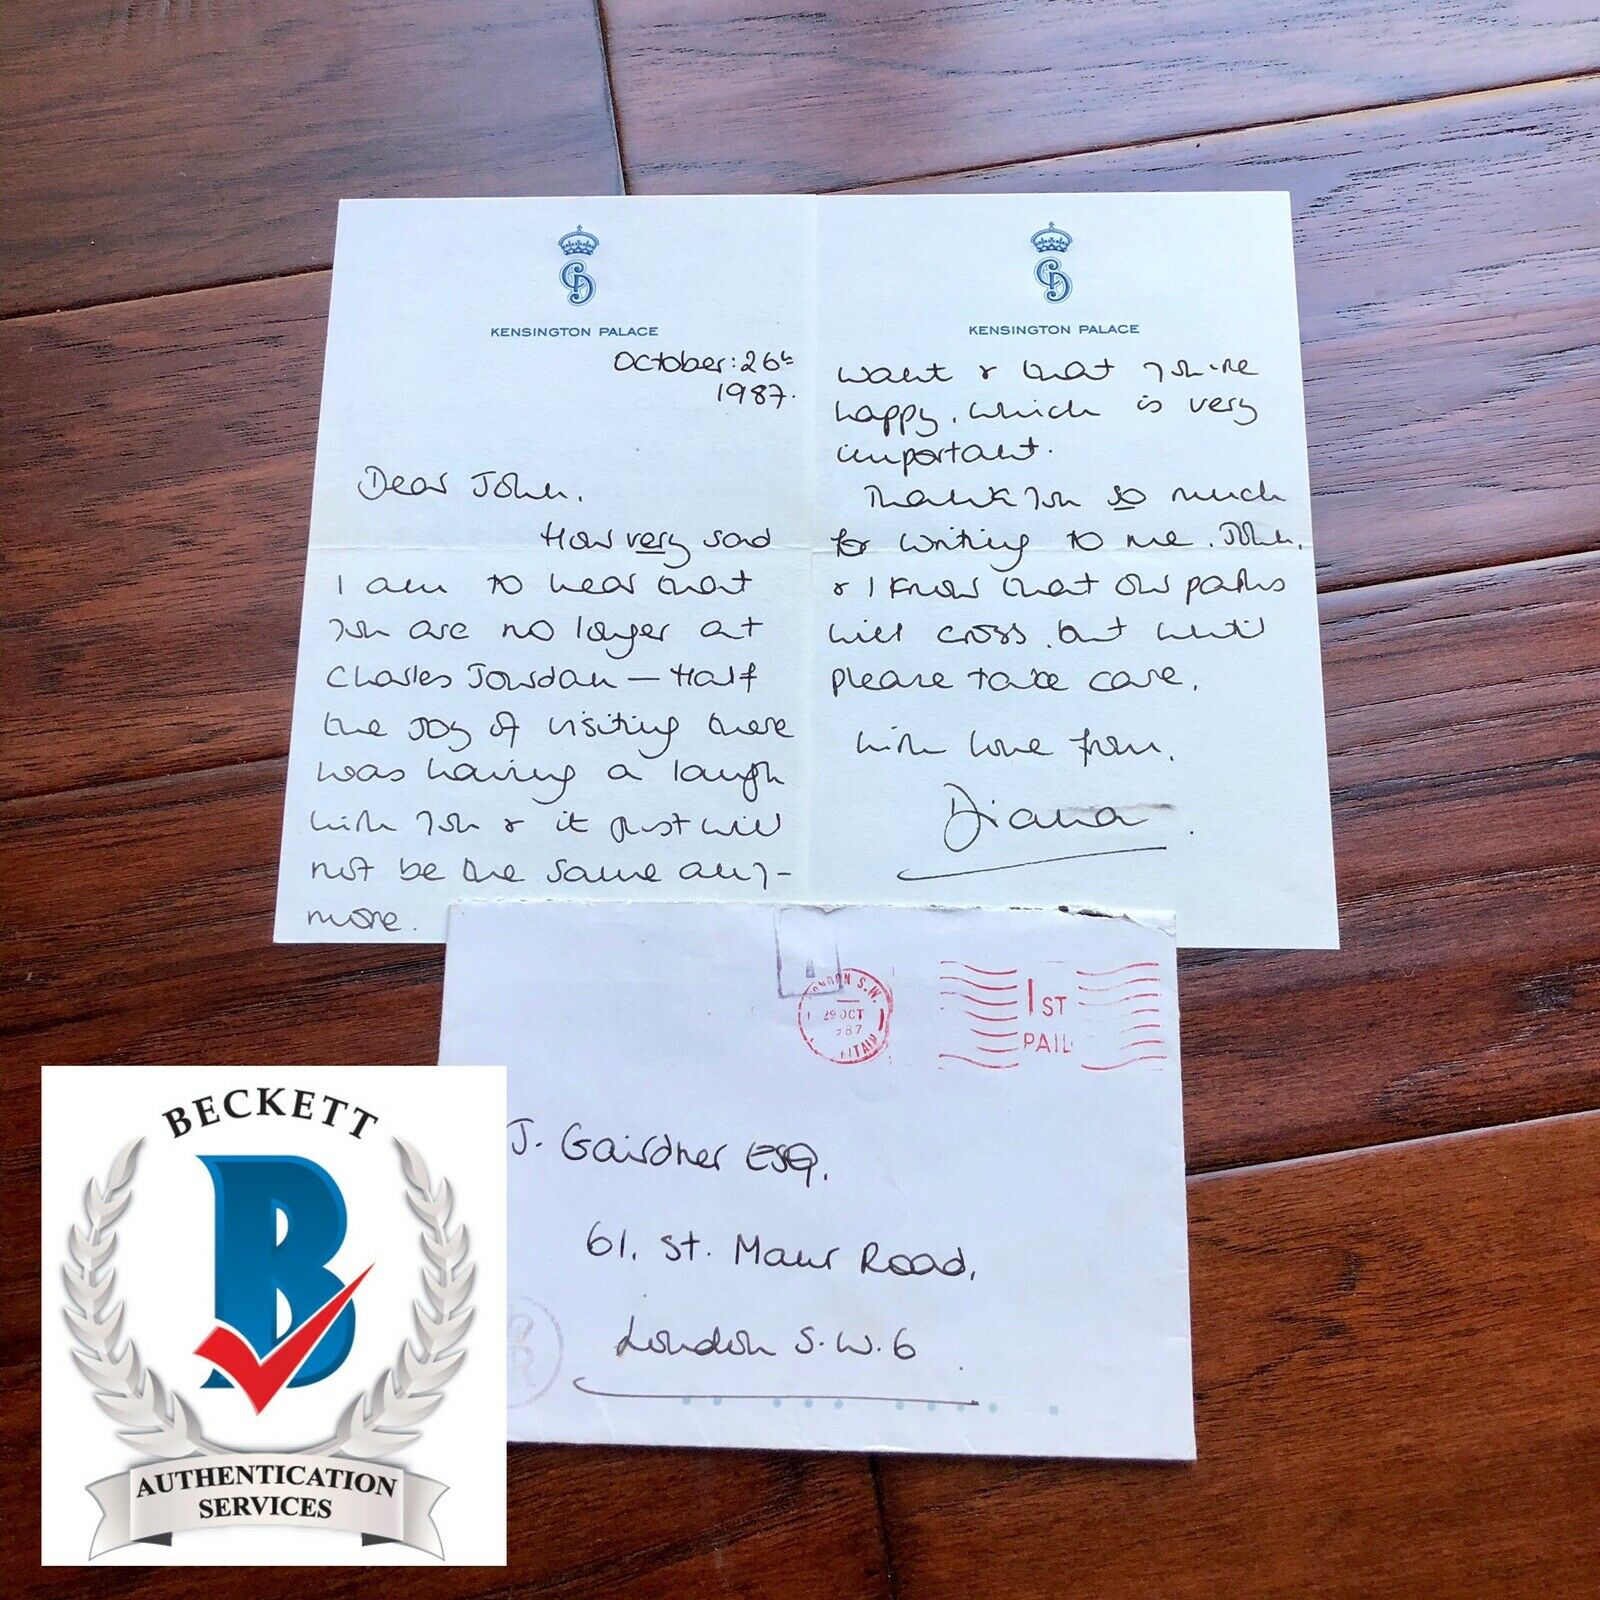 KENSINGTON PALACE
October: 26th
1987.
Dear John,
How very sad
I am to hear that
you are no longer at
Charles Jourdan — Half
the joy of visiting there
was having a laugh
with you & it just will
not be the same any-
more.
KENSINGTON PALACE
want & that you're
happy, which is very
important.
Thank you so much
for writing to me, John,
& I know that our paths
will cross, but until
please take care,
with love from,
Diana.
LONDON S.W.
29 OCT
1ST
PAI
J. Gairdner ESQ.
61, St. Maur Road,
London S.W.6
BECKETT
B
AUTHENTICATION
SERVICES